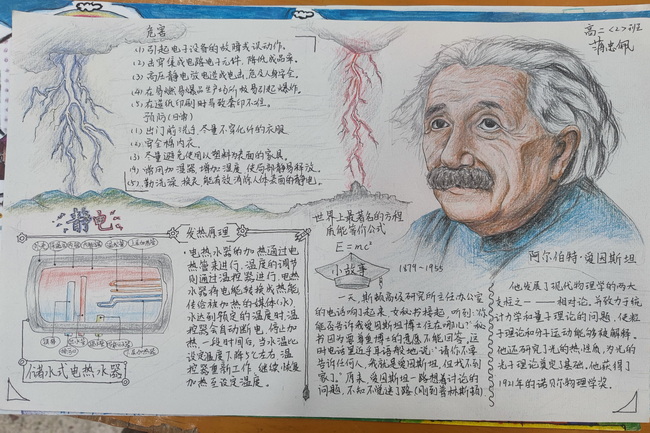 危害
(1) 引起电子设备的故障或误动作。
(2) 击穿集成电路电子元件,降低成品率。
(3) 高压静电放电造成电击,危及人身安全。
(4) 在易燃易爆品生产场所极易引起爆炸。
(5) 在造纸印刷时导致套印不准。
预防(日常)
(1) 出门前洗手,尽量不穿化纤的衣服。
(2) 穿全棉内衣。
(3) 尽量避免使用以塑料为表面的家具。
(4) 常用加湿器,增加湿度,使局部静易释放。
(5) 勤洗澡、换衣,能有效消除人体表面的静电。
高二〈2〉班
蒲忠佩
静电
发热原理
电热水器的加热通过电
热管来进行,温度的调节
则通过温控器进行,电热水
器将电能转换成热能
传给被加热的媒体(水)
水达到额定的温度时,温
控器会自动断电,停止加
热,一段时间后,当水温比
设定温度下降5℃左右,温
控器重新工作,继续恢复
加热至设定温度。
储水式电热水器
世界上最著名的方程
质能等价公式
E=mc²
小故事
1879-1955
一天,斯顿高级研究所主任办公室
的电话响了起来,女秘书接起,听到:“你
能否告诉我爱因斯坦博士住在哪儿?”秘
书因为要尊重博士的意愿不能回答,这
时电话里近乎耳语般地说:“请你不要
告诉任何人,我就是爱因斯坦,但找不到
家了。”原来,爱因斯坦一路想着讨论的
问题,不知不觉迷了路(刚到普林斯顿)
阿尔伯特·爱因斯坦
他发展了现代物理学的两大
支柱之一——相对论,并致力于统
计力学和量子理论的问题,使粒
子理论和分子运动能够被解释。
他还研究了光的热性质,为光的
光子理论奠定了基础。他获得了
1921年的诺贝尔物理学奖。